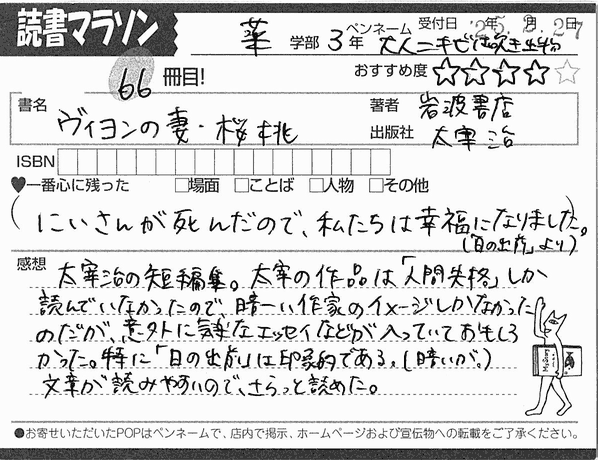 読書マラソン
薬 学部 3 年 ペンネーム 大人ニキビは吹き出物 受付日 '25年 2月 27日
66 冊目!
おすすめ度 ★★★★☆
書名 ヴィヨンの妻・桜桃
著者 岩波書店
出版社 太宰 治
ISBN
♥一番心に残った □場面 □ことば □人物 □その他
(にいさんが死んだので、私たちは幸福になりました。
(「日の出前」より)
感想
太宰治の短編集。太宰の作品は「人間失格」しか
読んでいなかったので、暗ーい作家のイメージしかなかった
のだが、意外に気楽なエッセイなどが入っていておもしろ
かった。特に「日の出前」は印象的である。(暗いが。)
文章が読みやすいので、さらっと読めた。
●お寄せいただいたPOPはペンネームで、店内で掲示、ホームページおよび宣伝物への転載をご了承ください。